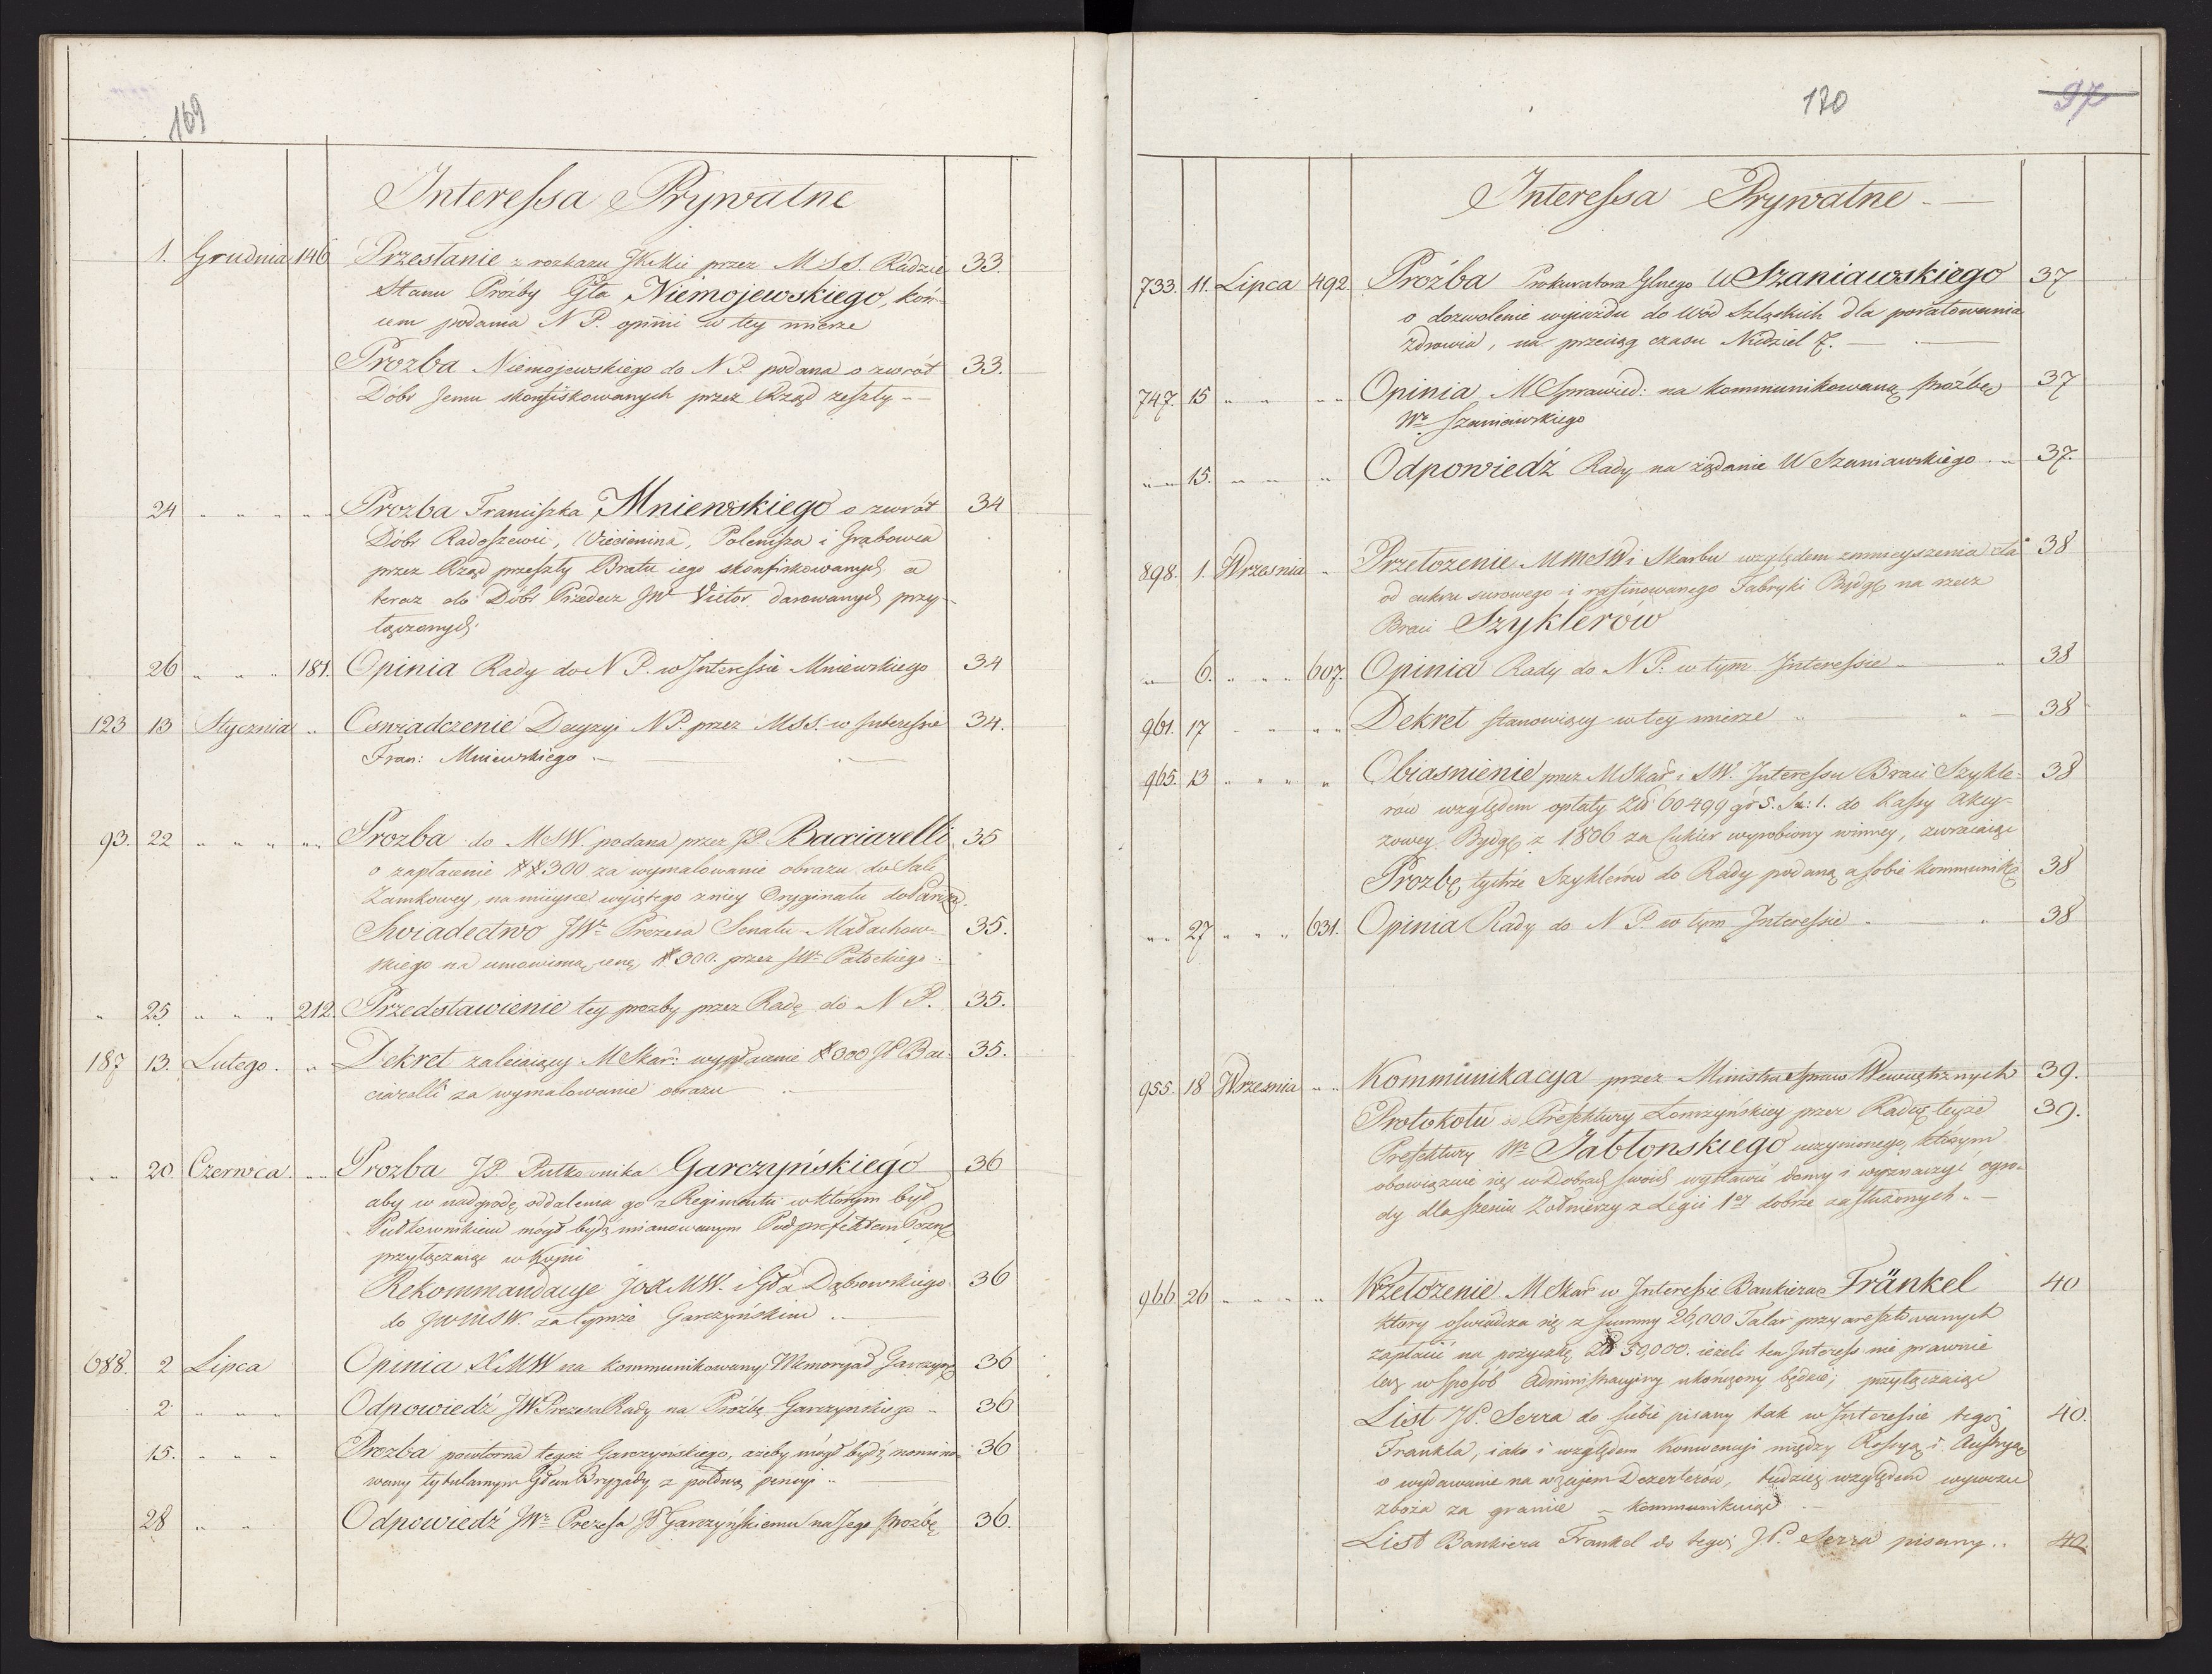 169
Interessa Prywatne
1. Grudnia 146 Przesłanie z rozkazu JKMci przez MSS. Radzie 33.
Stanu Prozby Gła Niemojewskiego, koń-
cem podania N P. opinii w tey mierze
Prozba Niemojewskiego do N P. podana o zwrót 33.
Dóbr Jemu skonfiskowanych przez Rząd zeszły
24 " " " " Prozba Franciszka Mniewskiego o zwrót 34
Dóbr Radoszewic, Wiecienina, Polenisza i Grabowca
przez Rząd przeszły Bratu iego skonfiskowanych a
teraz do Dóbr Przedecz JW Victor darowanych przy-
łączonych.
26 " " " 181. Opinia Rady do N P. w Interessie Mniewskiego 34
123 13 Stycznia " Oswiadczenie Decyzyi N P. przez MSS. w Interessie 34.
Fran: Mniewskiego
93. 22 " " " " Prozba do MSW. podana przez JP. Bacciarelli 35
o zapłacenie ## 300 za wymalowanie obrazu do Sali
Zamkowey, na mieysce wyiętego z niey Oryginału do Paryża.
Swiadectwo JWo Prezesa Senatu Małachow- 35.
skiego na umowioną cenę # 300. przez JWo Potockiego
" 25 " " " 212. Przedstawienie tey prozby przez Radę do N P. 35.
187 13. Lutego. " Dekret zalecaiący MSkar: wypłacenie # 300 JP Bac- 35.
ciarelli za wymalowanie obrazu
" " 20. Czerwca. " Prozba JP. Pułkownika Garczyńskiego 36
aby w nadgrodę oddalenia go z Regimentu w którym był
Pułkownikiem mógł bydź mianowanym Podprefektem Pozn:
przyłączaiąc w Kopii
Rekommandacye JOXMW. i Gła Dąbrowskiego 36
do JWMSW. za tymże Garczyńskim
688. 2 Lipca Opinia XMW na kommunikowany Memoryał Garczyń: 36
2 " " " Odpowiedź JW Prezesa Rady na Proźbę Garczyńskiego 36
15. " " " Prozba powtorna tegoż Garczyńskiego, ażeby mógł bydź nomino- 36
wany tytularnym Głem Brygady z połową pensyi
28 " " Odpowiedź JWo Prezesa JP Garczyńskiemu na Jego Proźbę 36.
170
97
Interessa Prywatne
733. 11. Lipca 492. Proźba Prokuratora Głnego W Szaniawskiego 37
o dozwolenie wyiazdu do Wód Szląskich dla poratowania
zdrowia, na przeciąg czasu Niedziel 7.
747. 15 " " " " Opinia MSprawied: na kommunikowaną proźbę 37
Wo Szaniawskiego
" " 15. " " " Odpowiedź Rady na żądanie W Szaniawskiego 37.
898. 1. Wrzesnia " Przełozenie MMSW i Skarbu względem zmnieyszenia cła 38
od cukru surowego i rafinowanego Fabryki Bydg: na rzecz
Braci Szyklerów
" 6. " " " 607. Opinia Rady do N P. w tym Interessie 38
961. 17 " " " " Dekret stanowiący w tey mierze 38
965. 13 " " " " Obiasnienie przez MSkar: i SW. Interessu Braci Szykle- 38
row względem opłaty Zł 60499 gr 5. Sz: 1. do Kassy Akcy-
zowey Bydg: z 1806 za Cukier wyrobiony winney, zwracaiąc
Prozbę tychże Szyklerow do Rady podaną a sobie kommunik: 38
" " 27 " " " 631. Opinia Rady do N P. w tym Interessie 38
955. 18 Wrzesnia " " Kommunikacya przez Ministra Spraw Wewnętrznych 39.
Protokołu w Prefektury Łomżyńskiey przez Radcę teyże 39.
Prefektury Wo Jabłonskiego uczynionego, którym
obowiązuie się w Dobrach swoich wystawić domy i wyznaczyć ogro-
dy dla sześciu Zołnierzy z Legii 1ey dobrze zasłużonych
966 26 " " " " Przełozenie MSkar: w Interessie Bankiera Fränkel 40
ktory oswiadcza się z summy 26,000 Talar: przyaresztowanych
zapłacić na pożyczkę Zł 50,000. ieżeli ten Interess nie prawnie
lecz w sposób Administracyiny ukończony będzie; przyłączaiąc
List JP. Serra do siebie pisany tak w Interessie tegoż 40.
Frankla, iako i względem Konwencyi między Rossyą i Austryą
o wydawanie na wzajem Dezerterów, tudzież względem wywozu
zboża za granicę kommunikuiąc
List Bankiera Frankel do tegoż JP. Serra pisany 40.